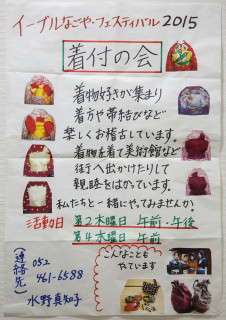 イーブルなごや・フェスティバル2015
着付の会
着物好きが集まり
着方や帯結びなど
楽しくお稽古しています。
着物を着て美術館など
街へ出かけたりして
親睦をはかっています。
私たちと一緒にやってみませんか
活動日 第2木曜日 午前・午後
第4木曜日 午前
こんなことも
やています
(連絡先)
052
461-6588
水野真知子